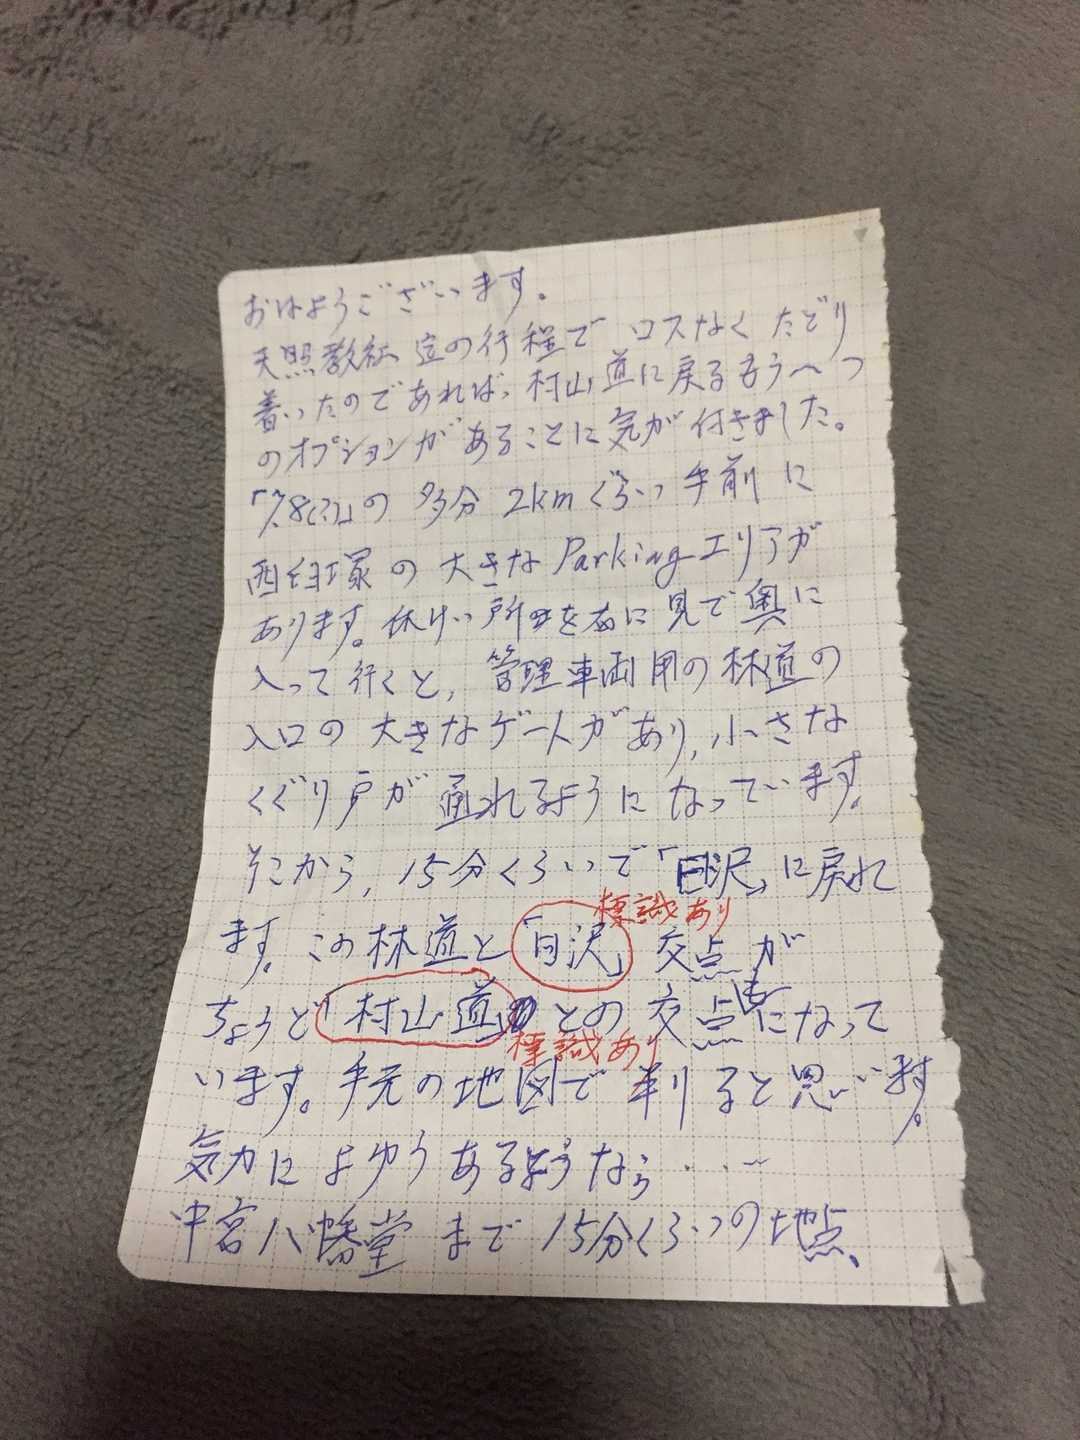 おはようございます。
天照教社 迄の行程で ロスなく たどり
着いたのであれば、村山道に戻るもう一つ
のオプションがあることに気が付きました。
「7.8(?)」の 多分 2kmぐらい 手前に
西臼塚の大きなParkingエリアが
あります。休けい所を右に見て奥に
入って行くと、管理車両用の林道の
入口の大きなゲートがあり、小さな
くぐり戸が通れるようになっています。
そこから、15分くらいで「日沢」に戻れ
標識あり
ます。この林道と「日沢」交点が
ちょうど「村山道」との交点になって
標識あり
います。手元の地図で判ると思います。
気力によゆうあるようなら・・・〜
中宮八幡堂まで15分くらいの地点、